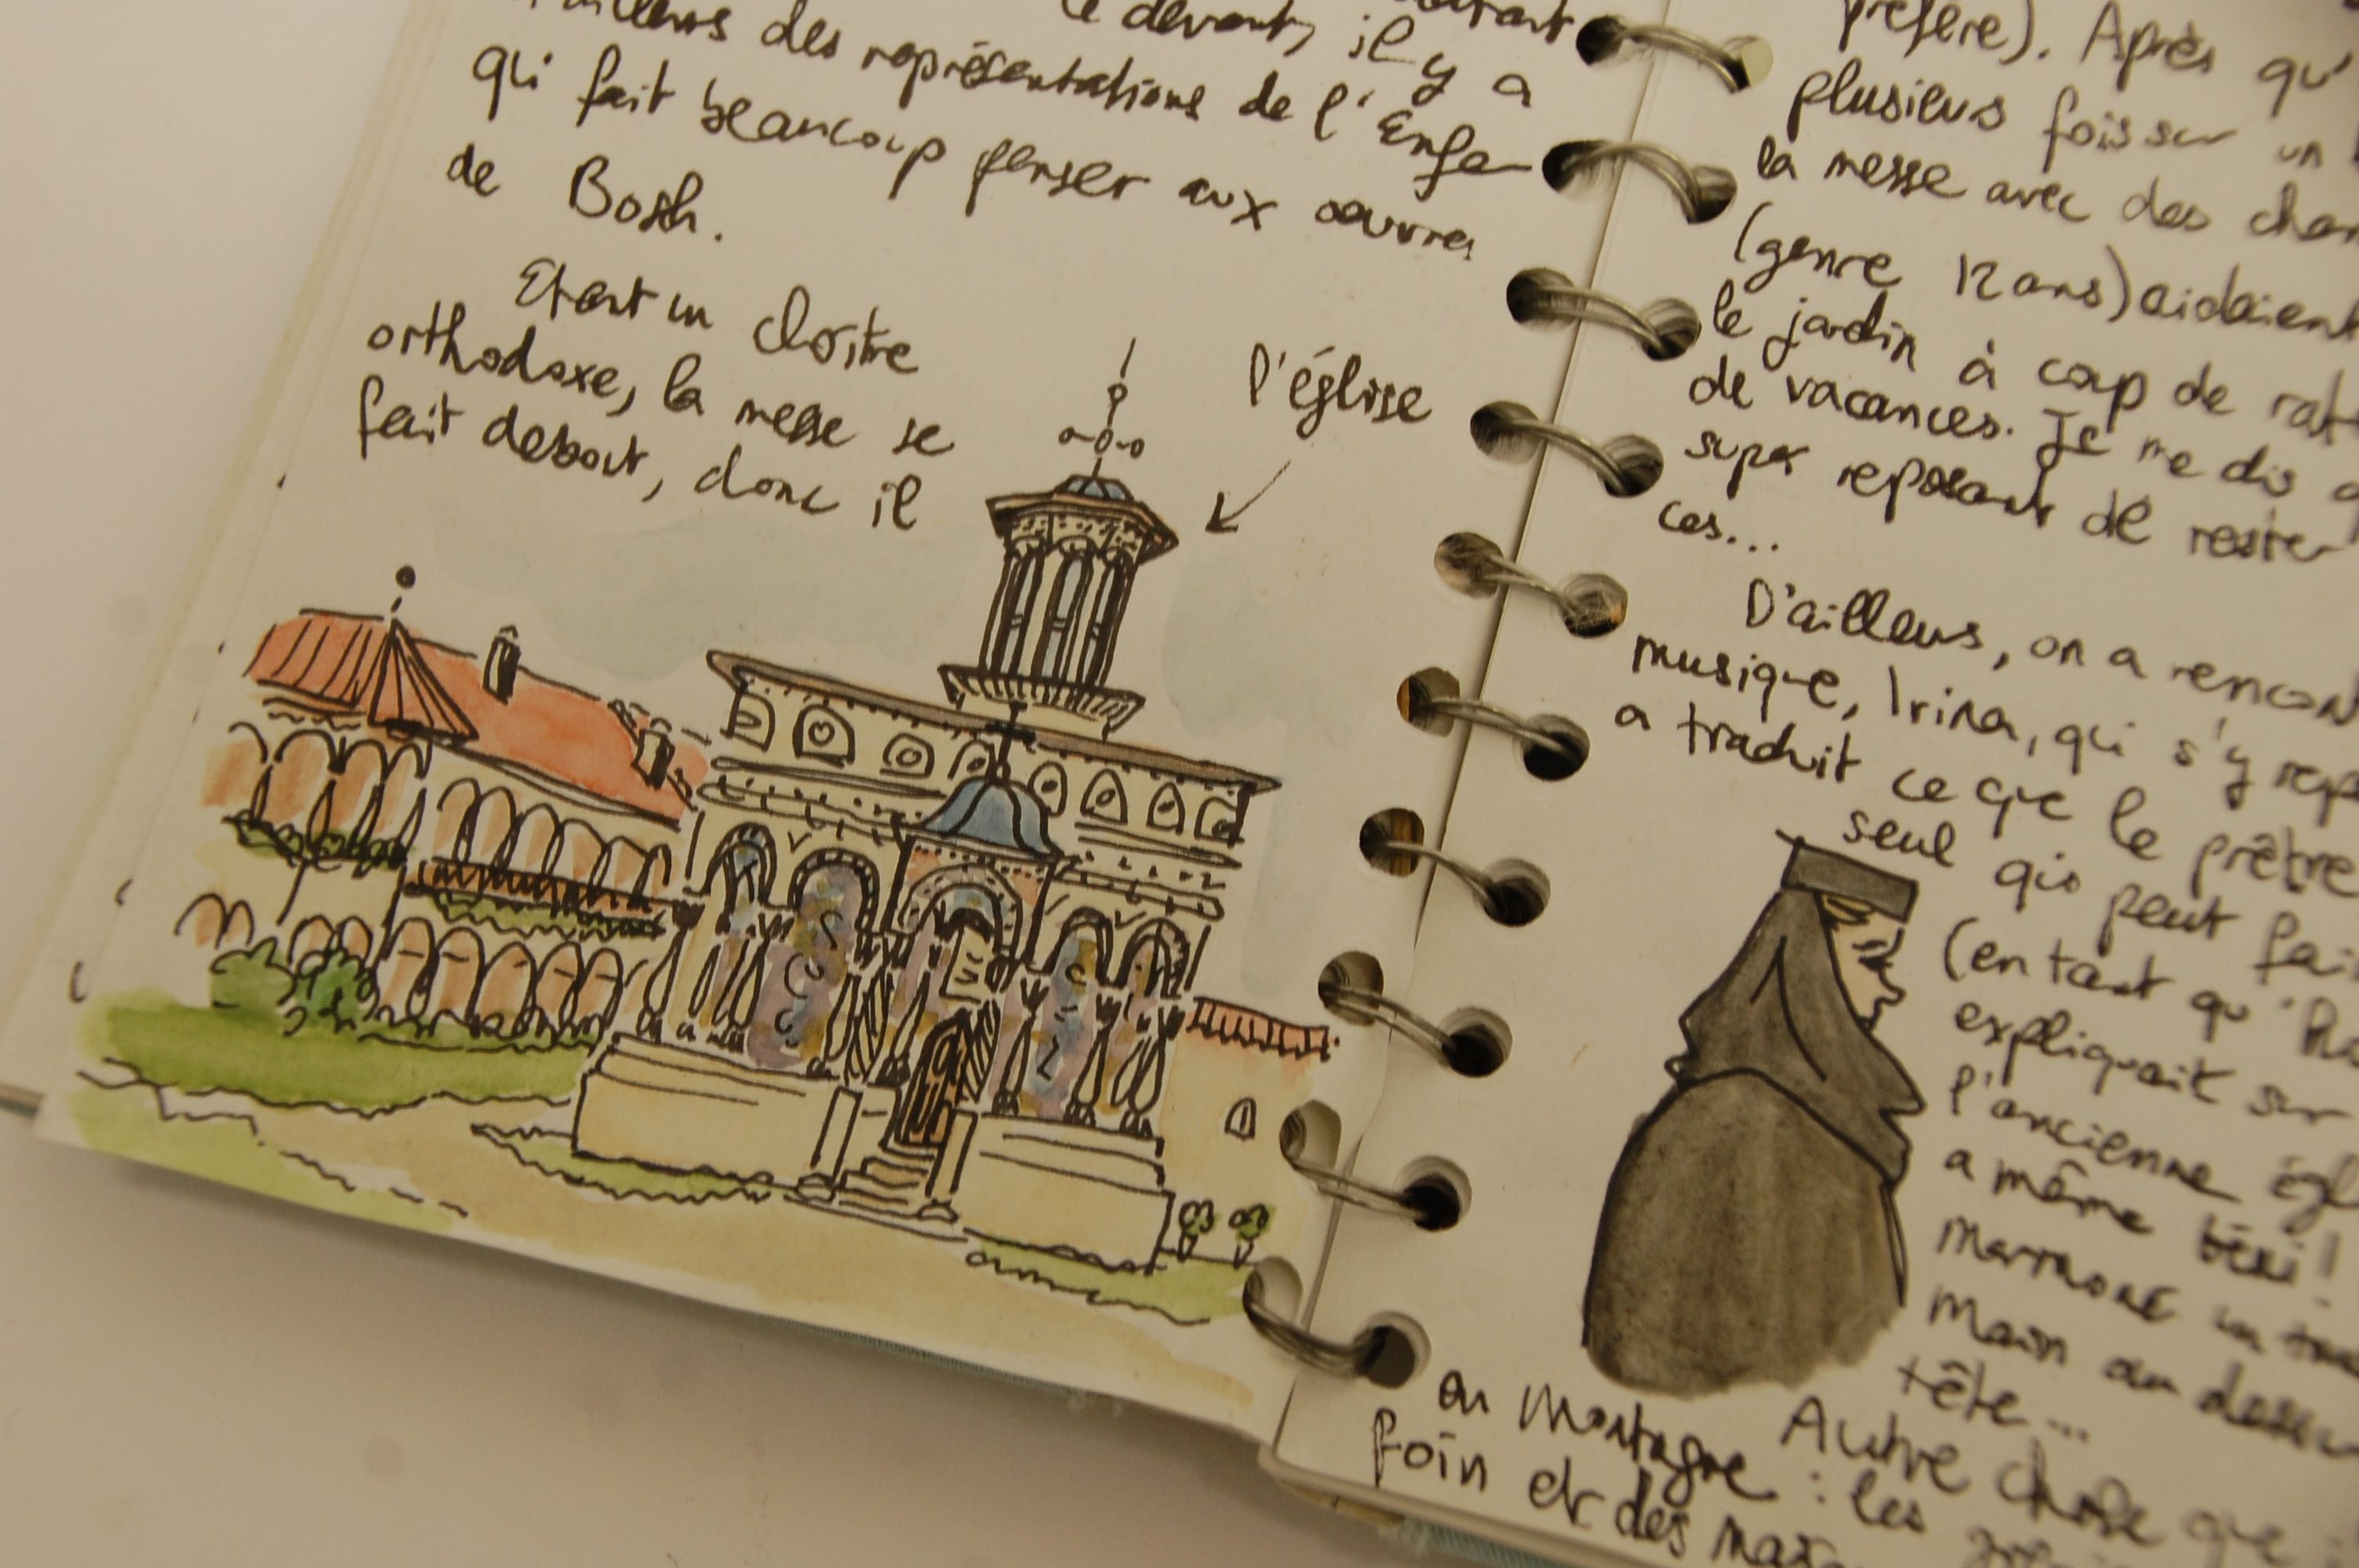 le devant, il y a
des représentations de l'Enfer
qui fait beaucoup penser aux oeuvres
de Bosh.
Etant un cloître
orthodoxe, la messe se
fait debout, donc il
l'église
préfère). Après qu'
plusieurs fois sur un
la messe avec des chan
(genre 12 ans) aidaient
le jardin à coup de rat
de vacances. Je me dis q
super reposant de rester
ces...
D'ailleurs, on a rencon
musique, Irina, qui s'y rep
a traduit ce que le prêtre
seul qui peut fai
(en tant qu'
expliquait sur
l'ancienne égl
a même béni!
marmoné un
main au dessu
tête...
Autre chose que
en Montagne : les
foin et des